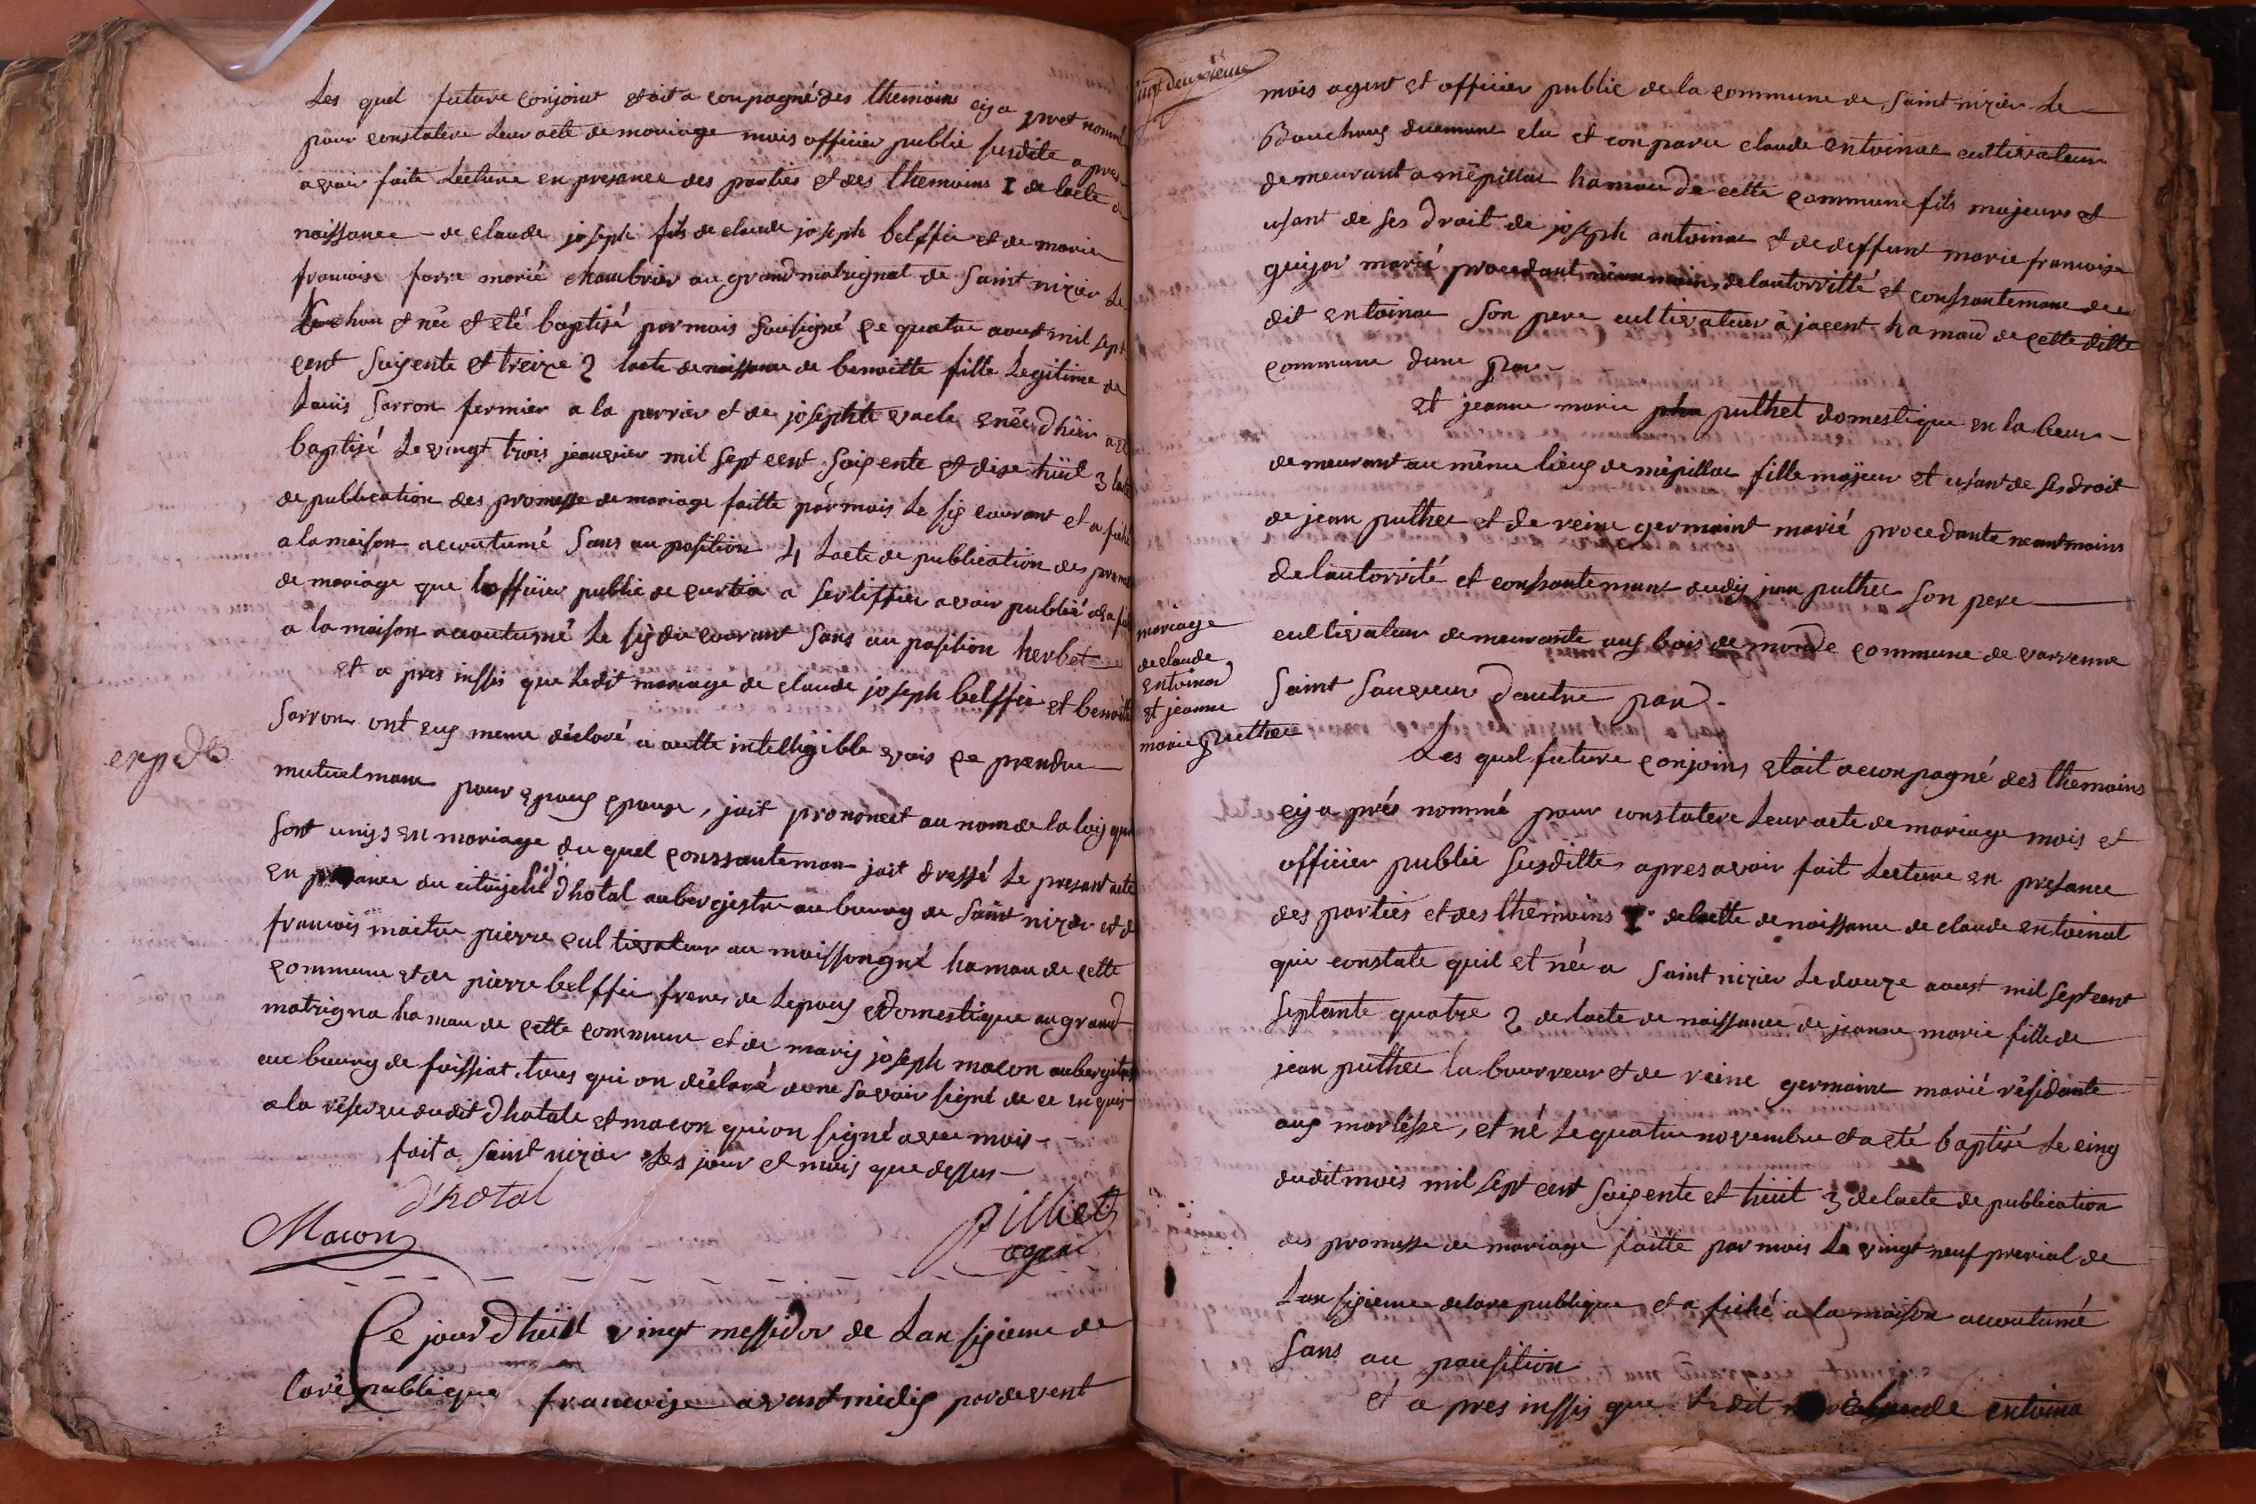 Les quel future conjoint etoit a compagné des themoins cy a pret nommé
pour constatere Leur acte de mariage mois officier public susdite a pres
avoir faite Lecture en presance des parties et des themoins 1 de lacte de
naissance de claude joseph fils de claude joseph belffie et de marie
francoise farre marié chambrier au grand matrignat de Saint nizier Le
Bouchou et née et eté baptisé par mois Sousigné ce quatre aoust mil sept
cent soigente et treize 2 lacte de naissance de benoitte fille Legitime de
Louis Sarron fermier a la perrier et de josephte vacle enée dhier
baptisé Le vingt trois jeanvier mil sept cent soigente et dise huit 3 lacte
de publication des promesse de mariage faitte par mois Le sig courant et a fiché
a la maison accoutumé Sans au position 4 Lacte de publication des promesse
de mariage que Lofficier public de curtia a sertiffier avoir publié et a fi
a la maison accoutumé Le sig du courant Sans au position herbet
et a pres inssis que Ledit mariage de claude joseph belffie et benoitte
Sarron ont eus meme déclaré a autte intelligible vois ce prendre
expdes
mutuelmans pour epoux epouse, jait prononcet au nom de la lois que
sont unijs en mariage du quel conssantemans jait dressé Le presant acte
en presance du citoijent dhotal aubergistre au bourg de Saint nizier et de
francois maitre pierre cultivateur au moissongné hamau de cette
commune et de pierre belffie freres de Lepoux et domestique au grand
matrigna hamau de cette commune et de marij joseph macon aubergites
au bourg de foissiat, tous qui on déclaré de ne savoir signé de ce enques
a la réserve dudit dhatale et macon qui on signé avec mois
fait a Saint nizier Les jour et mois que dessus
d'hotal
Macon
Pilliet
agent
Ce jour dhuit vingt messidor de Lan sigieme de
la république francoise avant midis pardevent
vingt deuxieme
mois agent et officier public de la commune de Saint nizier Le
Bouchoux elu et conparu claude entoinat cultivateur
demeurant a mépillat hamau de cette commune fils majeurs et
usant de ses droit de joseph antoinat et de deffunt marie francoise
guijot marié procedant néanmoins de lautorritté et conssantemans de
dit entoinat son pere cultivateur a jacent hamau de cette ditte
commune dune par
et jeanne marie puthet domestique en labeur
demeurant au même lieux de mépillat fille majeur et usant de ses droit
de jean puthet et de reine germaint marié procedante neantmoins
de lautorrité et conssantemans dudis jean puthet son pere
mariage
de claude
entoinat
et jeanne
marie puthet
cultivateur demeurante aux bois de monde commune de varvenne
Saint Sauveur dautre par
Les quel future conjoins etait aconpagné des themoins
cy a prés nommé pour constatere Leur acte de mariage mois et
officier public susditte, apres avoir fait Lecture en presance
des parties et des thémoins 1 delactte de naissance de claude entoinat
qui constate quil et née a Saint nizier Le douze aoust mil sept cent
septante quatre 2 de lacte de naissance de jeanne marie fille de
jean puthet labourreur et de reine germaine marié résidante
aux martésse, et né Le quatre novembre et a eté baptisé Le cinq
dudit mois mil sept cent soigente et huit 3 de lacte de publication
des promesse de mariage faitte par mois Le vingt neuf prerial de
Lan sigieme de la republique et a fiché a la maison accoutumé
Sans au pousition
et a pres inssis que Ledit claude entoina